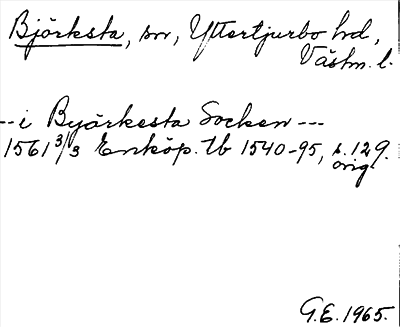 Björksta, sn, Yttertjurbo hd,
Västm. l.
-- i Byärkesta Socken ---
1561 3/3 Enköp. tb 1540-95, s. 129.
orig
G.E. 1965.